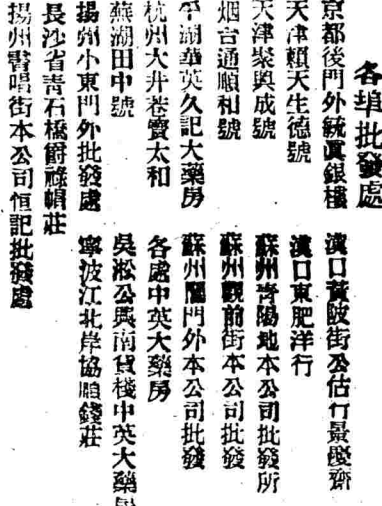 各埠批發處
京都後門外統眞銀樓
天津賴天生德號
天津聚興成號
烟台通順和號
平湖華英久記大藥房
杭州大井巷寶太和
蕪湖田中號
揚州小東門外批發處
長沙省靑石橋爵祿帽莊
揚州書唱街本公司恒記批發處
漢口黃陂街公估行景慶齋
漢口東肥洋行
蘇州靑陽地本公司批發所
蘇州觀前街本公司批發
蘇州閶門外本公司批發
各處中英大藥房
吳淞公興南貨棧中英大藥房
寧波江北岸協順錢莊